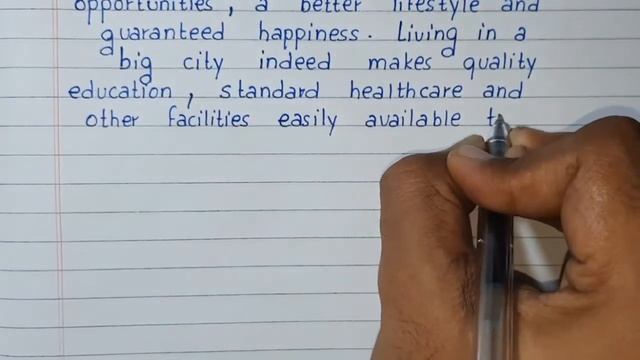 opportunities, a better lifestyle and
guaranteed happiness. Living in a
big city indeed makes quality
education, standard healthcare and
other facilities easily available t